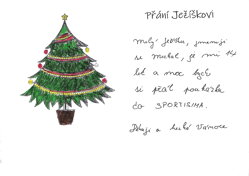 Přání Ježíškovi
Milý Ježíšku, jmenuji
se Michal, je mi 14
let a moc bych
si přál poukázku
do SPORTISIMA.
Děkuji a hezké Vánoce